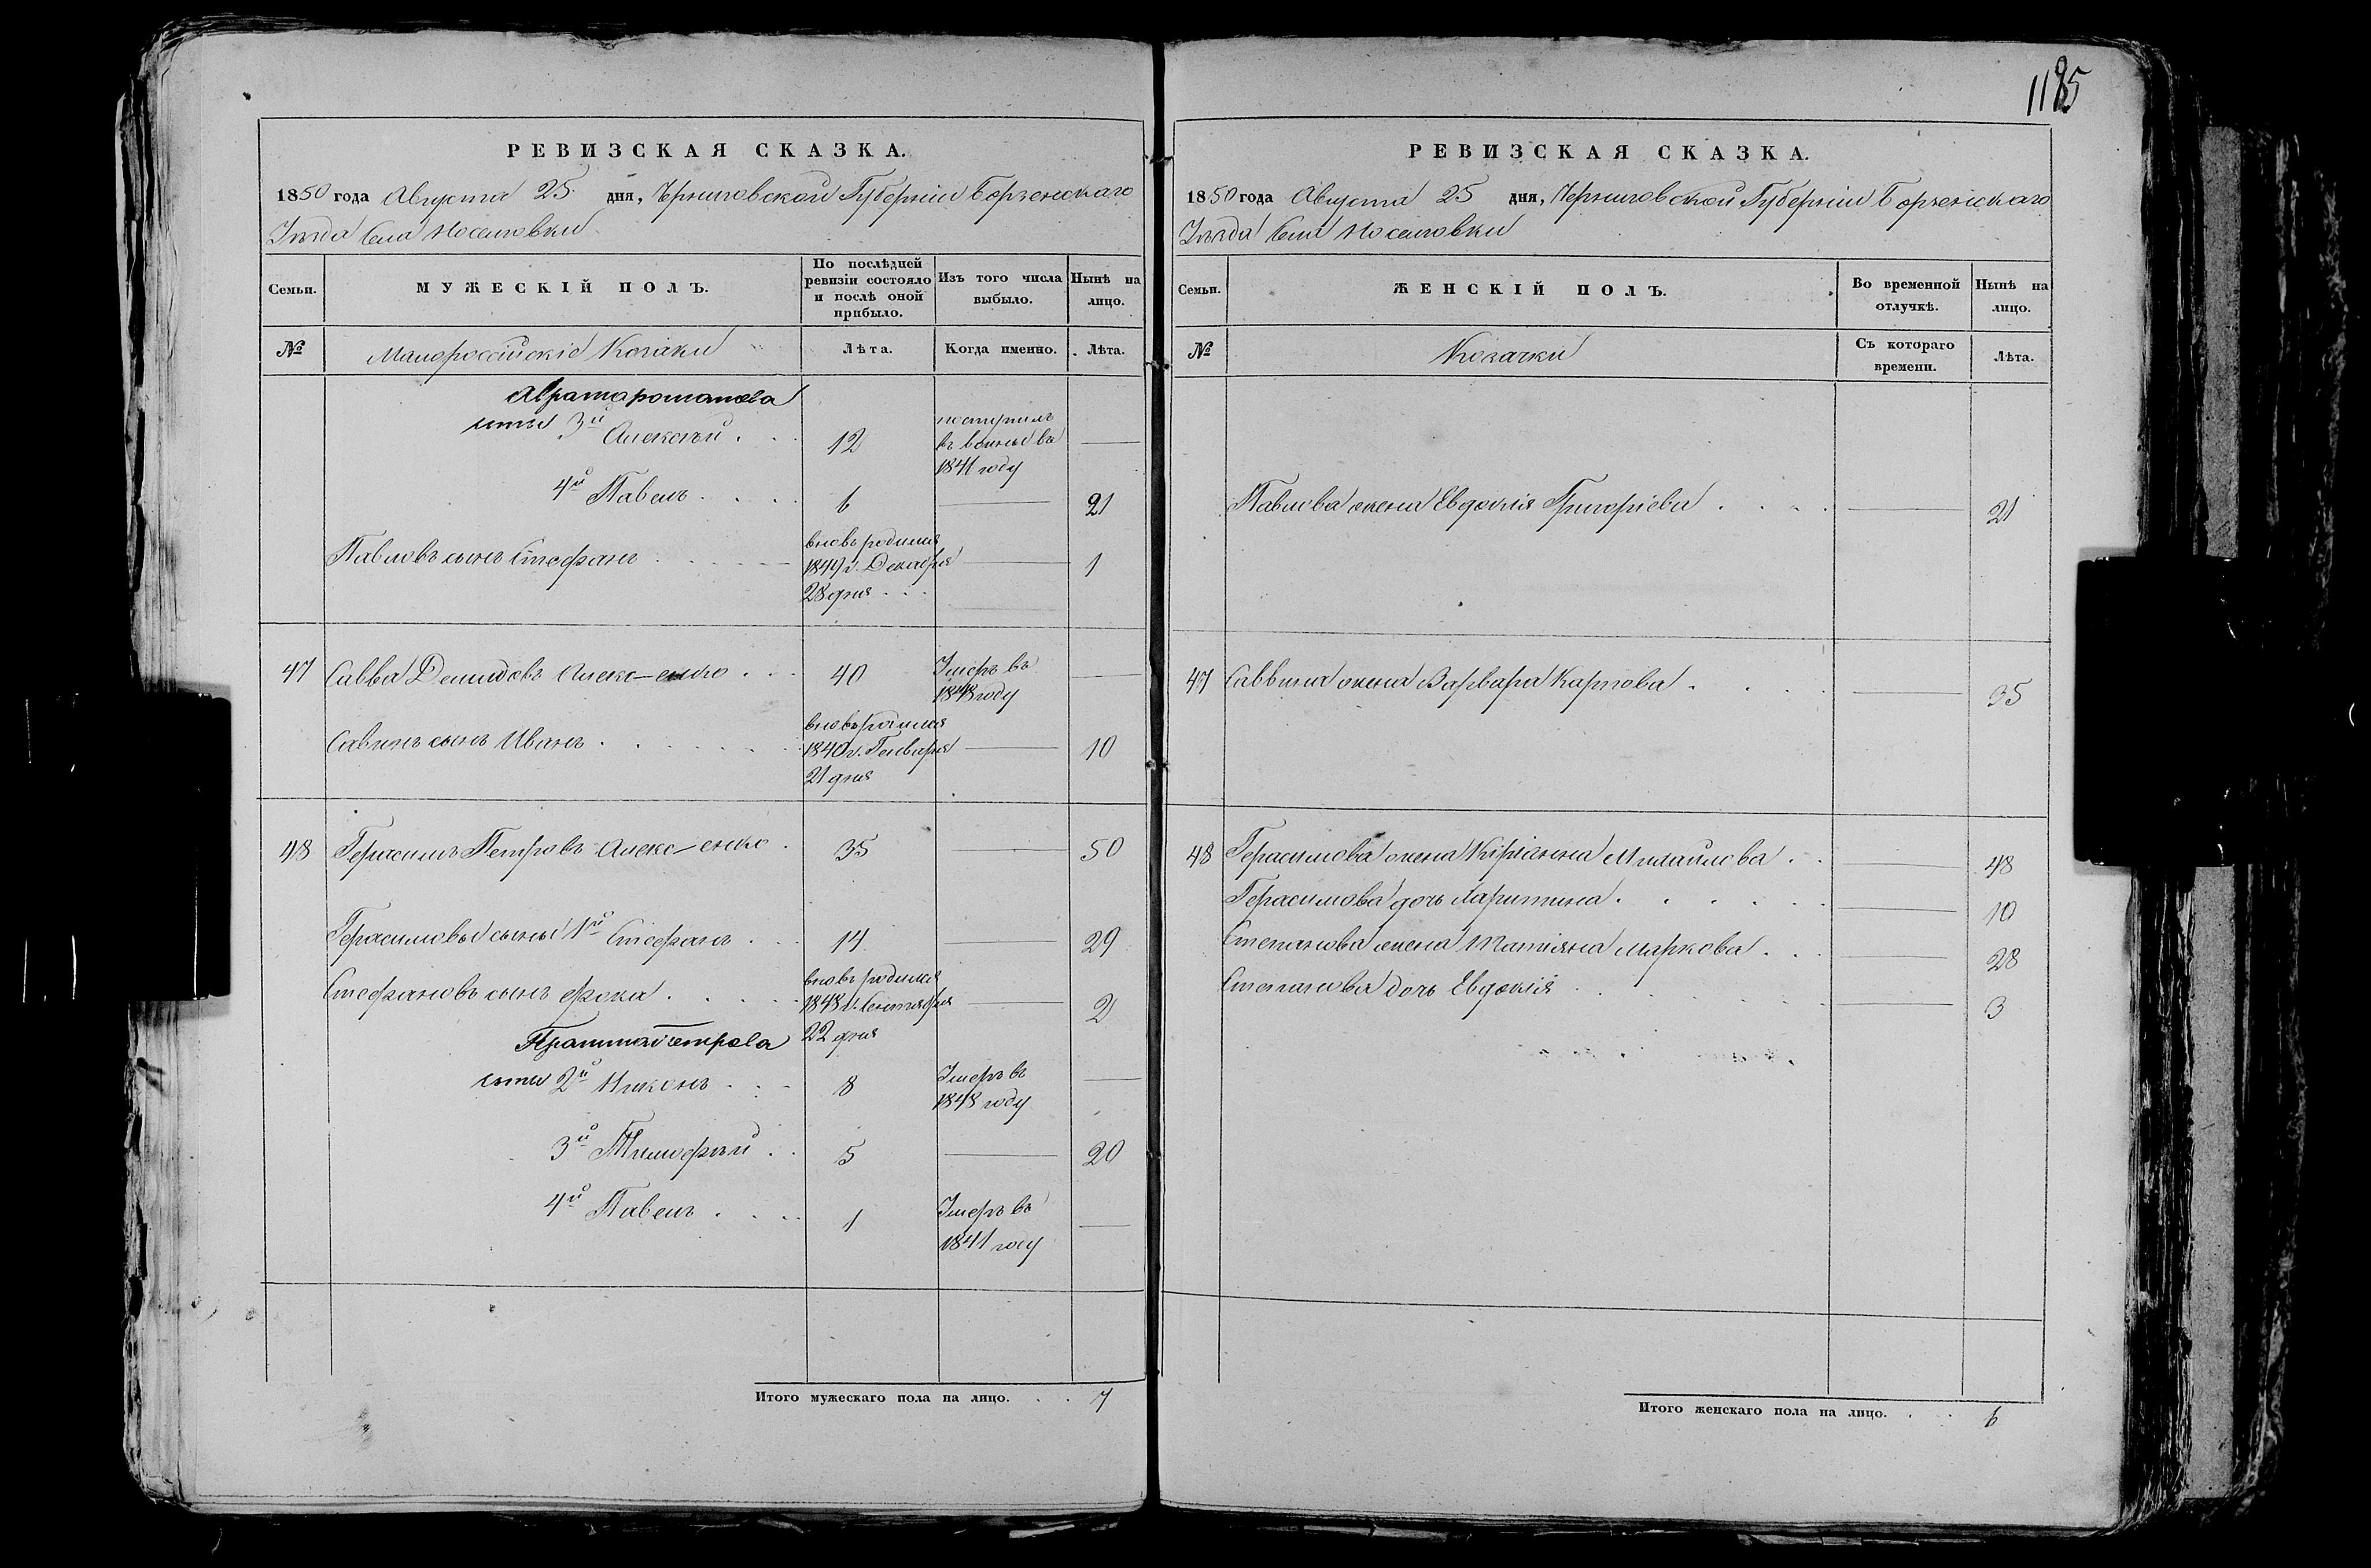 1185
РЕВИЗСКАЯ СКАЗКА.
1850 года Августа 25 дня, Черниговской Губерніи Борзенскаго
Уѣзда Села Носеловки
Семьи. МУЖЕСКІЙ ПОЛЪ. По послѣдней ревизіи состояло и послѣ оной прибыло. Изъ того числа выбыло. Нынѣ на лицо.
№ Малороссійскіе Козаки Лѣта. Когда именно. Лѣта.
3й Алексѣй 12 поступилъ
въ воины въ
1841 году
4й Павелъ 6 21
Павловъ сынъ Стефанъ вновь родился
1849 г. Декабря 1
28 дня
47 Савва Демидовъ Алексѣенко 40 Умеръ въ
1848 году
Савинъ сынъ Иванъ вновь родился
1840 г. Генваря 10
21 дня
48 Герасимъ Петровъ Алексѣенко 35 50
Герасимовы сыны 1й Стефанъ 14 29
Стефановъ сынъ Фока вновь родился
1848 г. Сентября 2
22 дня
2й Никонъ 8 Умеръ въ
1848 году
3й Тимофѣй 5 20
4й Павелъ 1 Умеръ въ
1841 году
Итого мужескаго пола на лицо. 7
РЕВИЗСКАЯ СКАЗКА.
1850 года Августа 25 дня, Черниговской Губерніи Борзенскаго
Уѣзда Села Носеловки
Семьи. ЖЕНСКІЙ ПОЛЪ. Во временной отлучкѣ. Нынѣ на лицо.
№ Козачки Съ котораго времени. Лѣта.
Павлова жена Евдокія Григоріева 21
47 Саввина жена Варвара Карпова 35
48 Герасимова жена Киріанна Михайлова 48
Герасимова дочь Харитина 10
Степанова жена Татіяна Маркова 28
Степанова дочь Евдокія 3
Итого женскаго пола на лицо. 6